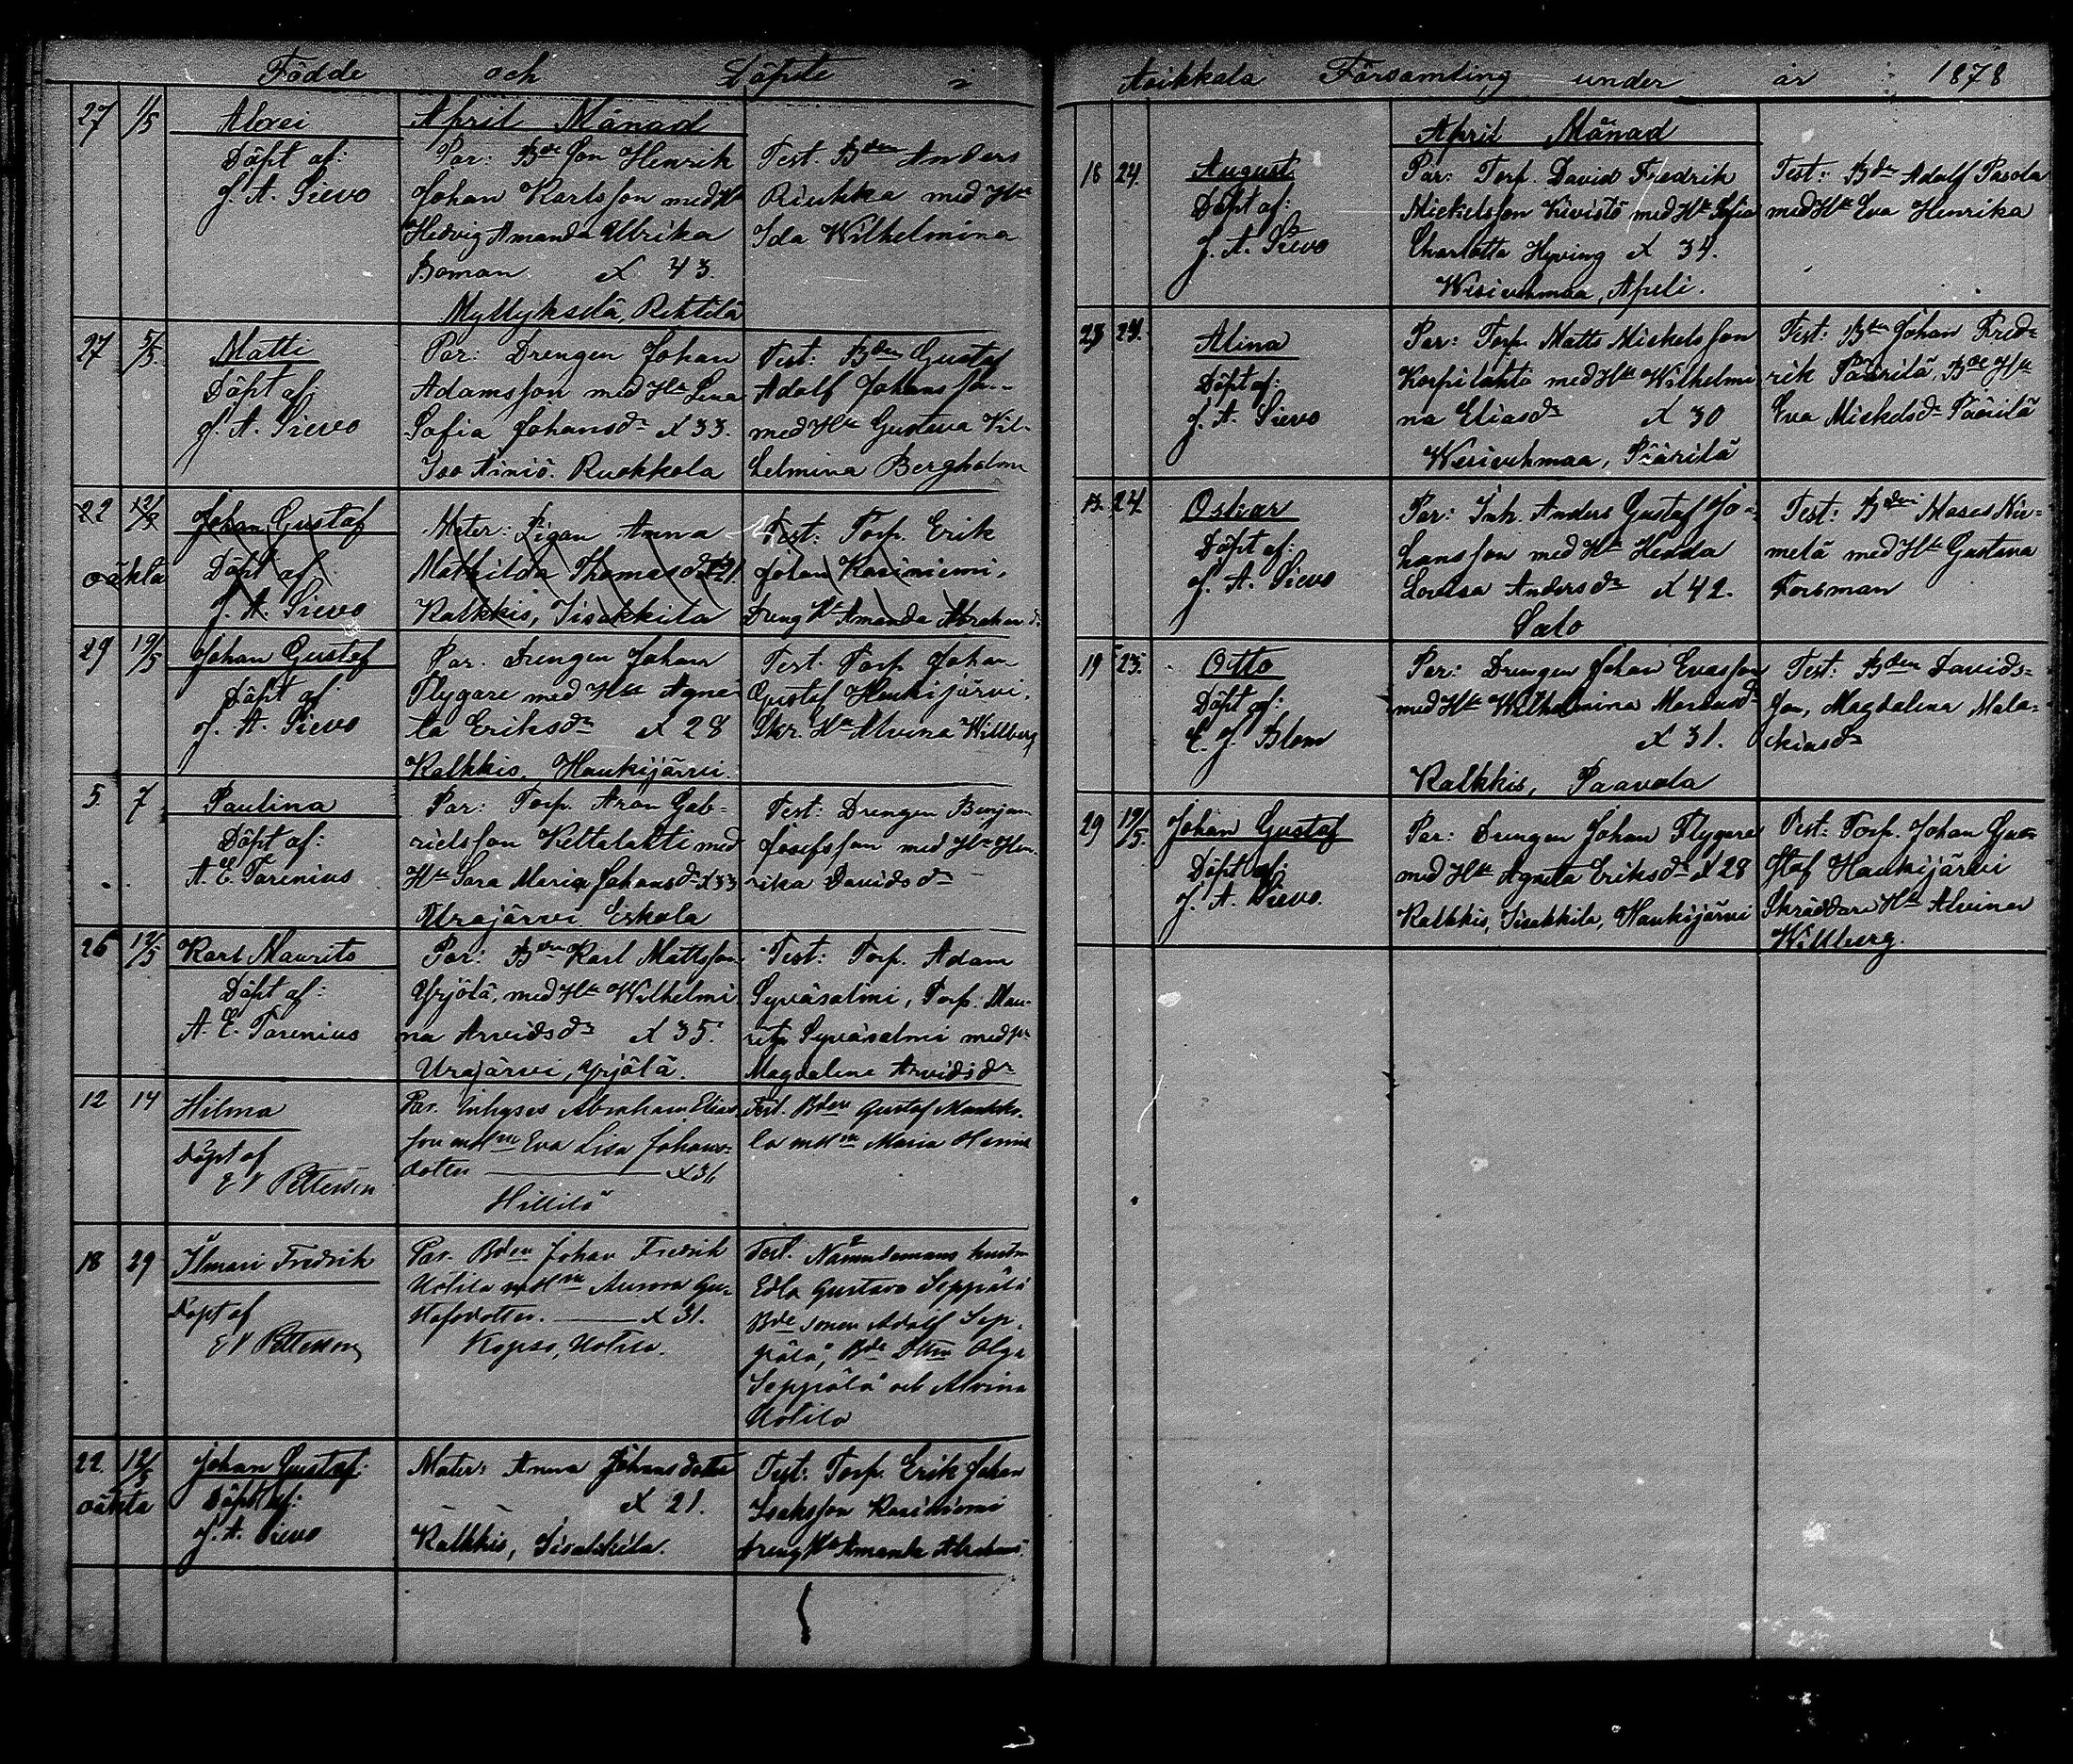 Födde och Döpte i
April Månad
27 1/5 Alexei
Döpt af:
J. A. Sievo
Par: Bde Son Henrik
Johan Karlsson med H
Hedvig Amanda Ulrika
Boman x 43.
Myllykselä, Rettilä
Test. Bden Anders
Riukka med Hu
Ida Wilhelmina
27 5/5. Matti
Döpt af:
J. A. Sievo
Par: Drengen Johan
Adamsson med Hu Lena
Sofia Johansdr x 33.
Iso Äiniö. Ruokkola
Test: Bden Gustaf
Adolf Johansson
med Hu Gustava Vil-
helmina Bergholm
22 12/5 Johan Gustaf
oäkta Döpt af
J. A. Sievo
Mater: Pigan Anna
Mathilda Thomasdr x 21.
Kalkkis, Iisakkila
Test: Torp. Erik
Johan Kasiniemi,
Dreng Hu Amanda Abrahamdr
29 19/5 Johan Gustaf
Döpt af
J. A. Sievo
Par. Drengen Johan
Flygare med Hu Agne
ta Eriksdr x 28
Kalkkis, Haukijärvi.
Test. Torp Johan
Gustaf Haukijärvi.
Skr. Hu Alvina Willberg
5. 7 Paulina
Döpt af:
A. E. Tarenius
Par: Torp. Aron Gab-
rielsson Keltalahti med
Hu Sara Maria Johansdr x 33
Urajärvi Eskola
Test: Drengen Benjam
Josefsson med Hu Hen-
rika Davidsdr
26 12/5 Karl Maurits
Döpt af:
A. E. Tarenius
Par: Bden Karl Mattsson
Yrjölä, med Hu Wilhelmi
na Arvidsdr x 35.
Urajärvi, Yrjölä.
Test: Torp. Adam
Syväsalmi, Torp. Mau-
ritz Syväsalmi med
Magdalena Arvidsdr
12 14 Hilma
Döpt af
E V Pettersson
Par. Inhyses Abraham Elias
son m H Eva Lisa Johans-
dotter x 36
Hillilä
Test. Bden Gustaf
la m H Maria
18 29 Ilmari Fredrik
Döpt af
E V Pettersson
Par. Bden Johan Fredrik
Uotila m H Aurora Gus-
tafsdotter. x 31.
Kopso, Uotila.
Test. Nämndemans hustru
Edla Gustava Seppälä
Bde sonen Adolf Sep-
pälä, Bde Dttrn Olga
Seppälä och Alvina
Uotila
22. 12/5 Johan Gustaf.
oäkta Döpt af:
J. A. Sievo
Mater: Anna Johansdotter
x 21.
Kalkkis, Iisakkila.
Test: Torp. Erik Johan
Isaksson Kasiniemi
Dreng Hu Amanda Abrahams.
Asikkala Församling under år 1878
April Månad
18 24. August
Döpt af:
J. A. Sievo
Par: Torp. David Fredrik
Mickelsson Kivistö med Hu Sofia
Charlotta Hyving x 34.
Wesivehmaa, Apeli.
Test: Bden Adolf Pasola
med Hu Eva Henrika
23 24. Alina
Döpt af:
J. A. Sievo
Par: Torp. Matts Mickelsson
Korpilahti med Hu Wilhelmi
na Eliasdr x 30
Wesivehmaa, Päärilä
Test: Bden Johan Fred-
rik Päärilä, Bde Hu
Eva Mickelsdr Päärilä
13. 24. Oskar
Döpt af:
J. A. Sievo
Par: Inh. Anders Gustaf Jo-
hansson med Hu Hedda
Lovisa Andersdr x 42.
Salo
Test: Bden Moses Nie-
melä med Hu Gustava
Forsman
19 23. Otto
Döpt af:
C. J. Blom
Par: Drengen Johan Evasson
med Hu Wilhelmina Mariasdr
x 31.
Kalkkis, Paavola
Test: Bden Davids-
son, Magdalena Mala-
kiasdr
29 19/5. Johan Gustaf
Döpt af:
J. A. Sievo.
Par: Drengen Johan Flygare
med Hu Agneta Eriksdr x 28
Kalkkis, Iisakkila, Haukijärvi
Test: Torp. Johan Gus-
staf Haukijärvi
Skräddare Hu Alvina
Willberg.